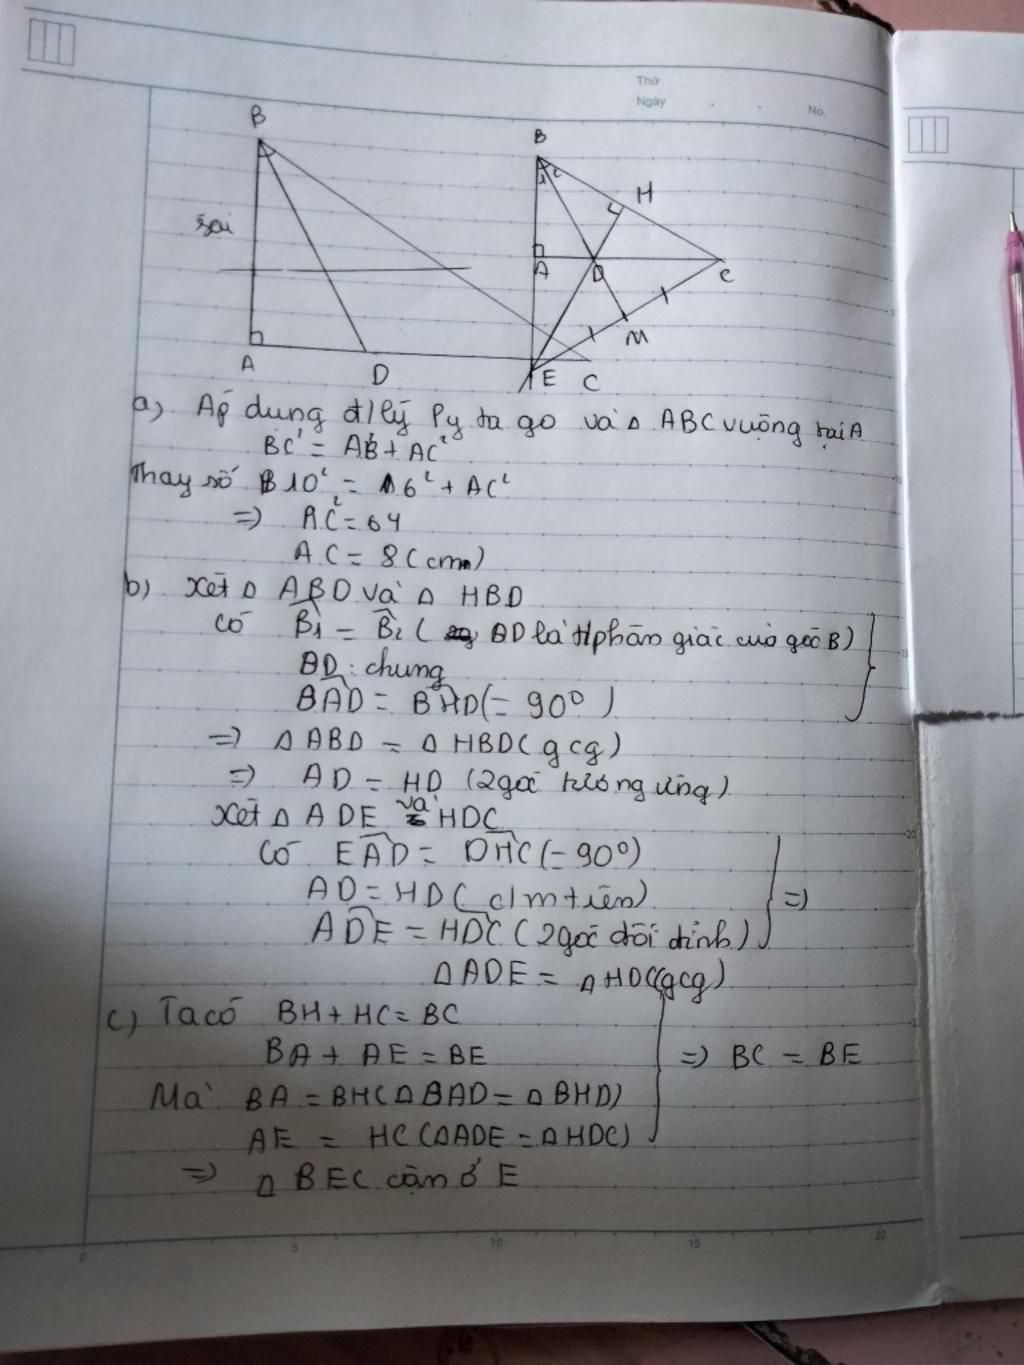 Thứ
Ngày
No.
B
sai
A
D
C
B
1 2
H
A
D
C
M
E
a) Áp dụng đ/lý Py ta go và △ ABC vuông tại A
BC² = AB² + AC²
Thay số 10² = 6² + AC²
=> AC² = 64
AC = 8 (cm)
b) Xét △ ABD và △ HBD
có B̂1 = B̂2 ( BD là t/phân giác của góc B)
BD : chung
BAD = BHD (= 90°)
=> △ ABD = △ HBD ( g c g)
=> AD = HD (2 góc tương ứng)
Xét △ ADE và HDC
Có EAD = DHC (= 90°)
AD = HD ( c/m trên)
=>
ADE = HDC ( 2 góc đối đỉnh)
△ ADE = △ HDC (gcg)
c) Ta có BH + HC = BC
BA + AE = BE => BC = BE
Mà BA = BH ( △ BAD = △ BHD)
AE = HC ( △ ADE = △ HDC)
=> △ BEC cân ở E
0 5 10 15 20